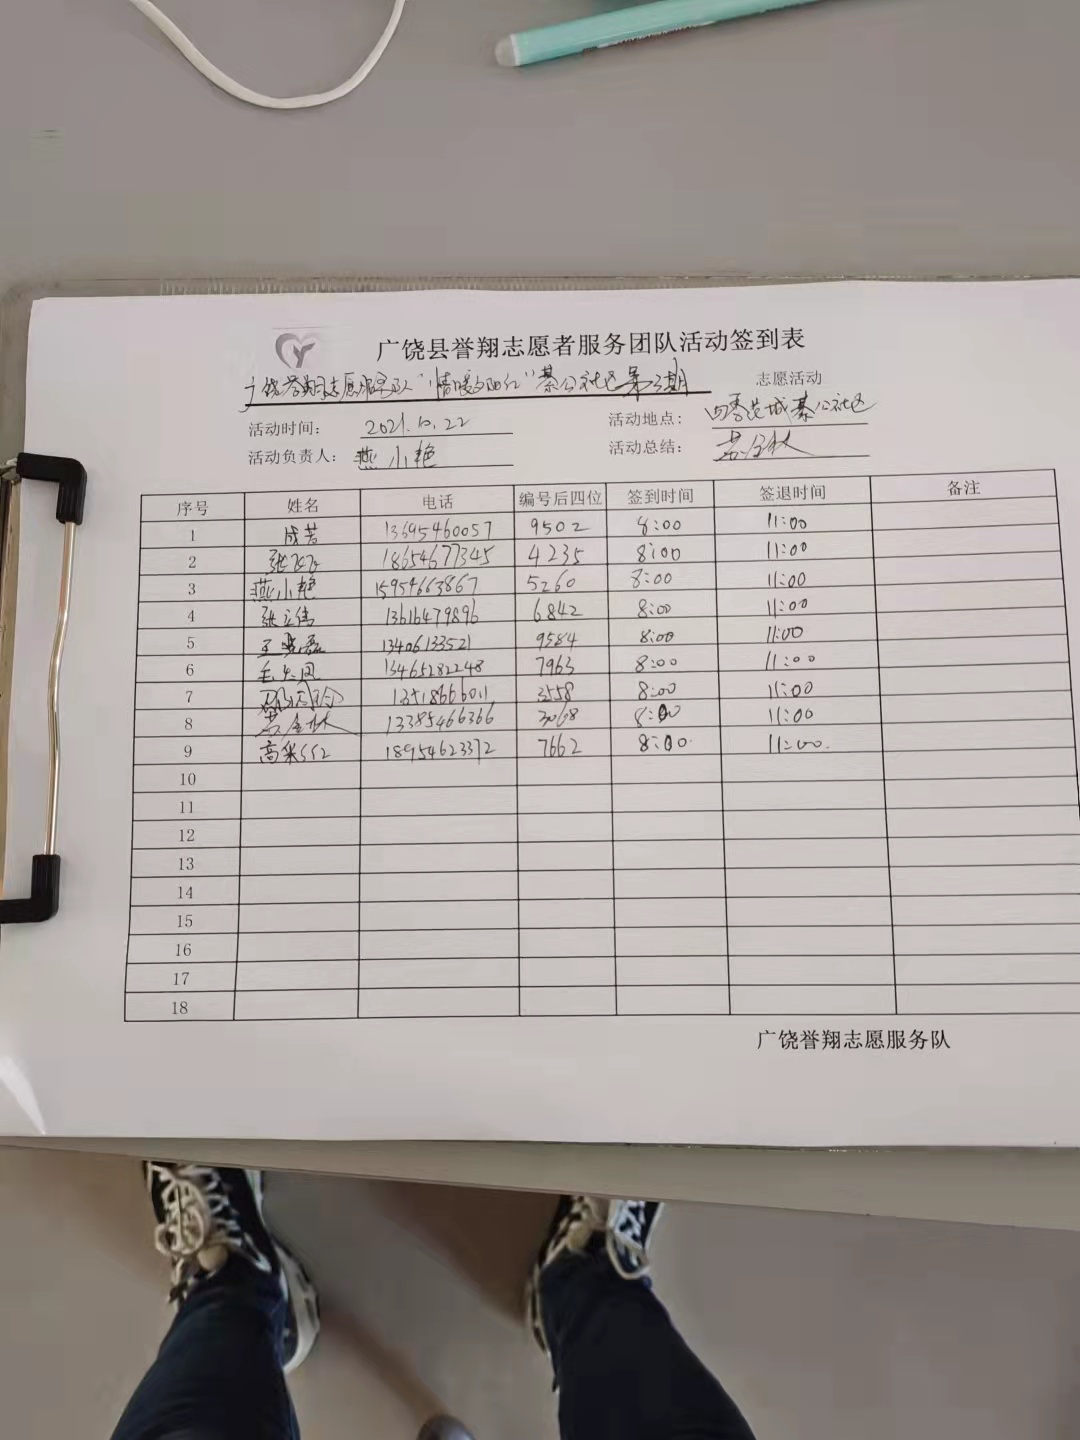 广饶县誉翔志愿者服务团队活动签到表
广饶誉翔志愿服务队"情暖夕阳红"綦公社区第3期 志愿活动
活动时间: 2021.10.22 活动地点: 四季花城綦公社区
活动负责人: 燕小艳 活动总结:
序号 姓名 电话 编号后四位 签到时间 签退时间 备注
1 成芳 13695460057 9502 8:00 11:00
2 张飞飞 18654677345 4235 8:00 11:00
3 燕小艳 15954663867 5260 8:00 11:00
4 张立伟 13616479896 6842 8:00 11:00
5 王 13406133521 9584 8:00 11:00
6 毛 13465282248 7963 8:00 11:00
7 13518666011 3558 8:00 11:00
8 13385466366 3068 8:00 11:00
9 高采红 18954623372 7662 8:00 11:00
10
11
12
13
14
15
16
17
18
广饶誉翔志愿服务队